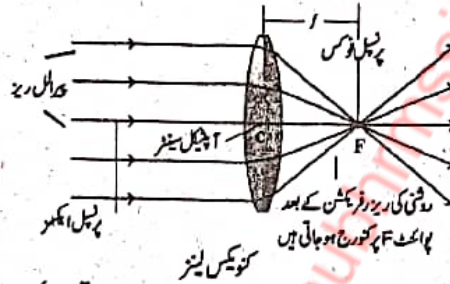 f
پرنسپل فوکس
پیرالل ریز
آپٹیکل سینٹر
C
F
پرنسپل ایکسز
روشنی کی ریز رفریکشن کے بعد
پوائنٹ F پر کنورج ہو جاتی ہیں
کنویکس لینز